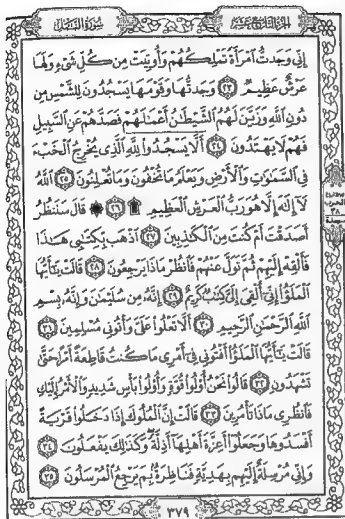 الجزء التاسع عشر
سورة النمل
إِنِّي وَجَدتُّ امْرَأَةً تَمْلِكُهُمْ وَأُوتِيَتْ مِن كُلِّ شَيْءٍ وَلَهَا
عَرْشٌ عَظِيمٌ ٢٣ وَجَدتُّهَا وَقَوْمَهَا يَسْجُدُونَ لِلشَّمْسِ مِن
دُونِ اللَّهِ وَزَيَّنَ لَهُمُ الشَّيْطَٰنُ أَعْمَٰلَهُمْ فَصَدَّهُمْ عَنِ السَّبِيلِ
فَهُمْ لَا يَهْتَدُونَ ٢٤ أَلَّا يَسْجُدُوا لِلَّهِ الَّذِي يُخْرِجُ الْخَبْءَ
فِي السَّمَٰوَٰتِ وَالْأَرْضِ وَيَعْلَمُ مَا تُخْفُونَ وَمَا تُعْلِنُونَ ٢٥ اللَّهُ
لَا إِلَٰهَ إِلَّا هُوَ رَبُّ الْعَرْشِ الْعَظِيمِ ۩ ٢٦ ۞ قَالَ سَنَنظُرُ
أَصَدَقْتَ أَمْ كُنتَ مِنَ الْكَٰذِبِينَ ٢٧ اذْهَب بِّكِتَٰبِي هَٰذَا
فَأَلْقِهْ إِلَيْهِمْ ثُمَّ تَوَلَّ عَنْهُمْ فَانظُرْ مَاذَا يَرْجِعُونَ ٢٨ قَالَتْ يَٰٓأَيُّهَا
الْمَلَؤُا إِنِّي أُلْقِيَ إِلَيَّ كِتَٰبٌ كَرِيمٌ ٢٩ إِنَّهُ مِن سُلَيْمَٰنَ وَإِنَّهُ بِسْمِ
اللَّهِ الرَّحْمَٰنِ الرَّحِيمِ ٣٠ أَلَّا تَعْلُوا عَلَيَّ وَأْتُونِي مُسْلِمِينَ ٣١
قَالَتْ يَٰٓأَيُّهَا الْمَلَؤُا أَفْتُونِي فِي أَمْرِي مَا كُنتُ قَاطِعَةً أَمْرًا حَتَّىٰ
تَشْهَدُونِ ٣٢ قَالُوا نَحْنُ أُولُوا قُوَّةٍ وَأُولُوا بَأْسٍ شَدِيدٍ وَالْأَمْرُ إِلَيْكِ
فَانظُرِي مَاذَا تَأْمُرِينَ ٣٣ قَالَتْ إِنَّ الْمُلُوكَ إِذَا دَخَلُوا قَرْيَةً
أَفْسَدُوهَا وَجَعَلُوا أَعِزَّةَ أَهْلِهَا أَذِلَّةً وَكَذَٰلِكَ يَفْعَلُونَ ٣٤
وَإِنِّي مُرْسِلَةٌ إِلَيْهِم بِهَدِيَّةٍ فَنَاظِرَةٌ بِمَ يَرْجِعُ الْمُرْسَلُونَ ٣٥
الحزب
٣٨
سجدة
٣٧٩